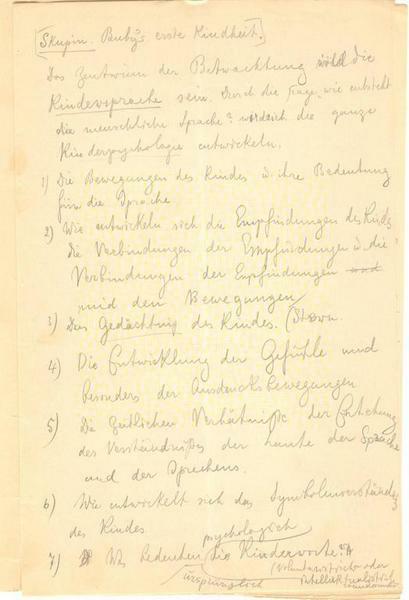 [Skupin. Bubys erste Kindheit.]
Das Zentrum der Betrachtung wird die
Kindersprache sein. Durch die Frage, wie entsteht
die menschliche Sprache? werde ich die ganze
Kinderpsychologie entwickeln.
1) Die Bewegungen des Kindes u. ihre Bedeutung
für die Sprache
2) Wie entwickeln sich die Empfindungen des Kindes
die Verbindungen der Empfindungen u. die
Verbindungen der Empfindungen und
mid den Bewegungen
3) Das Gedächtniß des Kindes. (Stern.
4) Die Entwicklung der Gefühle und
besonders der Ausdrucksbewegungen
5) Die zeitlichen Verhältniße der
des Verständnißes der Laute der Sprache
und der Sprechens.
6) Wie entwickelt sich das Symbolverständniß
des Kindes.
psychologisch
7) Was bedeuten die Kinderworte
ursprünglich
(voluntaristisch oder
intellektualistisch